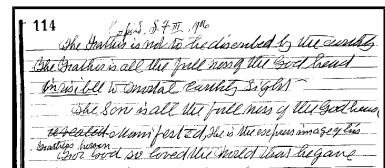 114
The Father is not to be discribed by the earthly
The Father is all the fullness of the God head
invisible to mortal earthly sight
The Son is all the fullness of the God head
manifested, He is the express image of his
Father's person
God so loved the world that he gave